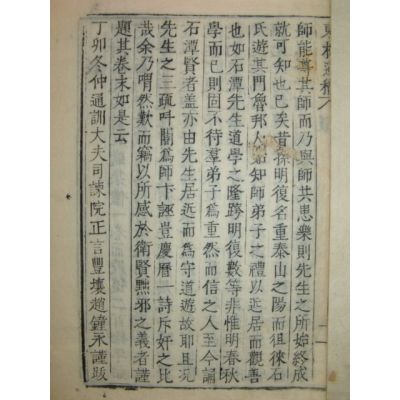 師能尊其師而乃與師共患樂則先生之所始終成
就可知也已矣昔孫明復名重泰山之陽而徂徠石
氏遊其門魯邦人始知師弟子之禮以近居而觀善
也如石潭先生道學之隆跨明復數等非惟明春秋
學而已則固不待羣弟子爲重然而信之人至今誦
石潭賢者盖亦由先生居近而爲守道遊故耶且況
先生之三疏叫閽爲師卞誣豈慶曆一詩斥奸之比
哉余乃喟然歎而竊以所感於衛賢黜邪之義者謹
題其卷末如是云
丁卯冬仲通訓大夫司諫院正言豐壤趙鐘永謹跋